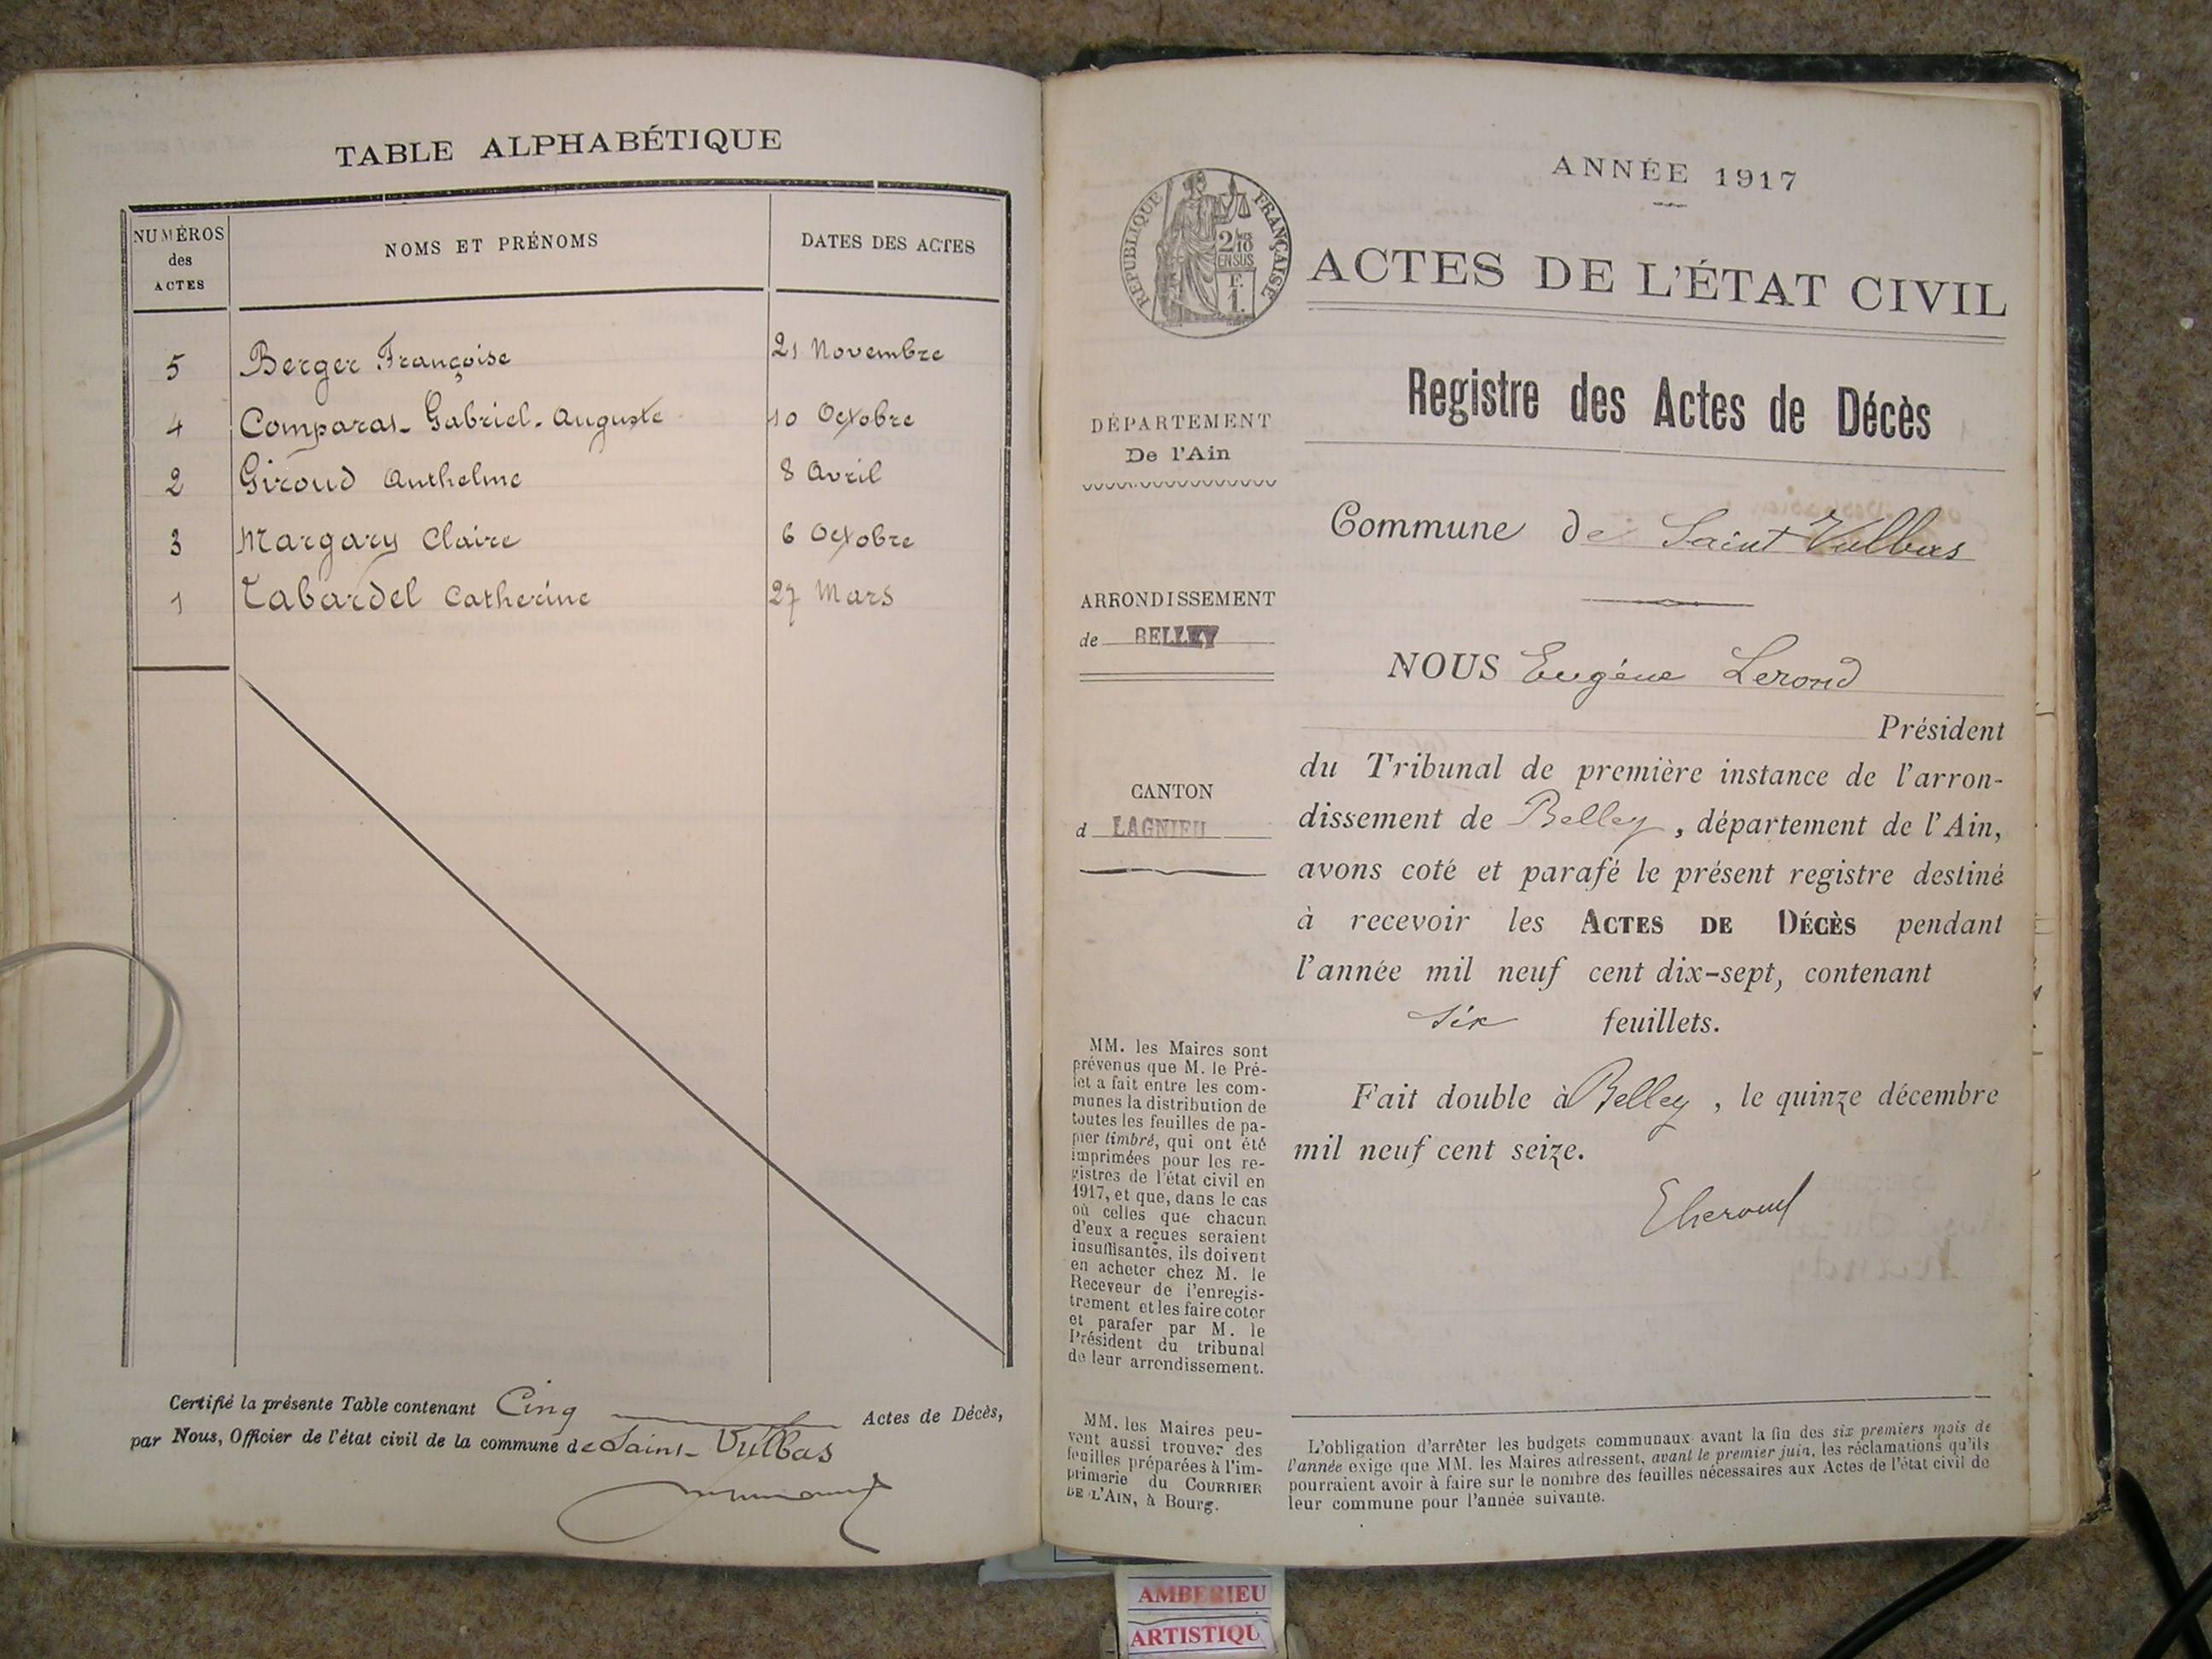 TABLE ALPHABÉTIQUE
NUMÉROS
des
ACTES
NOMS ET PRÉNOMS
DATES DES ACTES
5 Berger Françoise 21 Novembre
4 Comparas- Gabriel-Auguste 10 Octobre
2 Giroud Anthelme 8 Avril
3 Margary Claire 6 Octobre
1 Tabardel Catherine 27 Mars
Certifié la présente Table contenant Cinq Actes de Décès,
par Nous, Officier de l'état civil de la commune de Saint-Vulbas
ANNÉE 1917
RÉPUBLIQUE FRANÇAISE
2/10
EN SUS
F.
1.
ACTES DE L'ÉTAT CIVIL
Registre des Actes de Décès
DÉPARTEMENT
De l'Ain
Commune de Saint Vulbas
ARRONDISSEMENT
de BELLEY
NOUS Eugène Lerond
Président
du Tribunal de première instance de l'arron-
dissement de Belley, département de l'Ain,
avons coté et parafé le présent registre destiné
à recevoir les ACTES DE DÉCÈS pendant
l'année mil neuf cent dix-sept, contenant
six feuillets.
Fait double à Belley, le quinze décembre
mil neuf cent seize.
ELerond
CANTON
d LAGNIEU
MM. les Maires sont
prévenus que M. le Pré-
fet a fait entre les com-
munes la distribution de
toutes les feuilles de pa-
pier timbré, qui ont été
imprimées pour les re-
gistres de l'état civil en
1917, et que, dans le cas
où celles que chacun
d'eux a reçues seraient
insuffisantes, ils doivent
en acheter chez M. le
Receveur de l'enregis-
trement et les faire coter
et parafer par M. le
Président du tribunal
de leur arrondissement.
MM. les Maires peu-
vent aussi trouver des
feuilles préparées à l'im-
primerie du COURRIER
DE L'AIN, à Bourg.
L'obligation d'arrêter les budgets communaux avant la fin des six premiers mois de
l'année exige que MM. les Maires adressent, avant le premier juin, les réclamations qu'ils
pourraient avoir à faire sur le nombre des feuilles nécessaires aux Actes de l'état civil de
leur commune pour l'année suivante.
AMBERIEU
ARTISTIQU